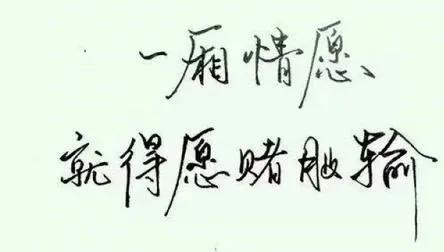 一厢情愿、
就得愿赌服输